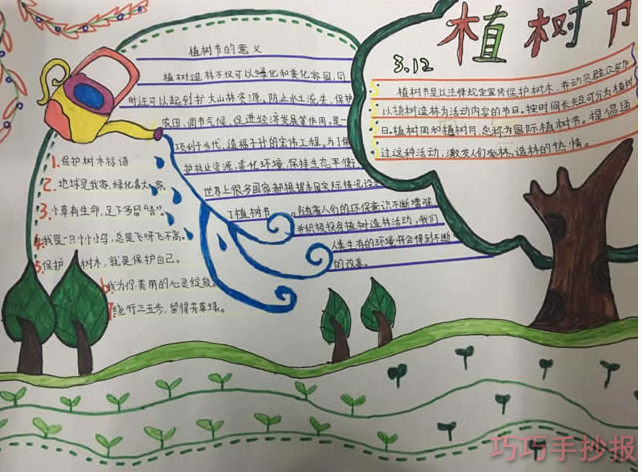 植树节
3.12
植树节的意义
植树造林不仅可以绿化和美化家园,同
时还可以起到扩大山林资源、防止水土流失、保护
农田、调节气候、促进经济发展等作用,是一
项利于当代、造福子孙的宏伟工程。为了保
护林业资源,美化环境,保持生态平衡
世界上很多国家都根据本国实际情况
了植树节。随着人们的环保意识不断增强
并积极投身植树造林活动,我们
人类生存的环境将会得到不断
的改善。
植树节是以法律规定宣传保护树木,并动员群众参加
以植树造林为活动内容的节日。按时间长短可分为植树
日、植树周和植树月,总称为国际植树节。提倡通
过这种活动,激发人们爱林、造林的热情。
1.保护树木标语
2.地球是我家,绿化靠大家。
3.小草有生命,足下多留“青”。
4.我是一只小小鸟,总是飞呀飞不高。
5.保护树木,就是保护自己。
6.我为你美丽的心灵绽放。
7.绕行三五步,留得芳草绿。
巧巧手抄报